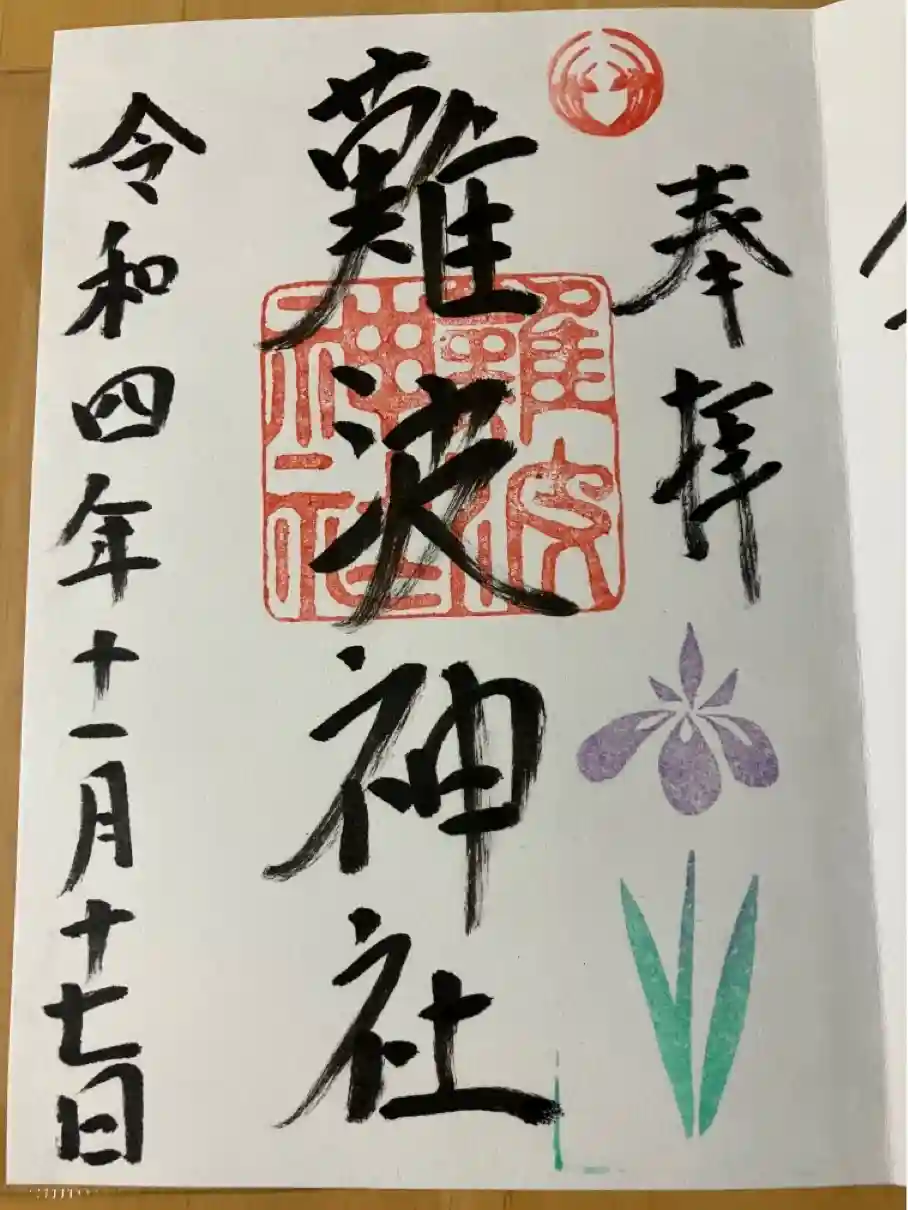 奉拝
難波神社
難波神社
令和四年十一月十七日